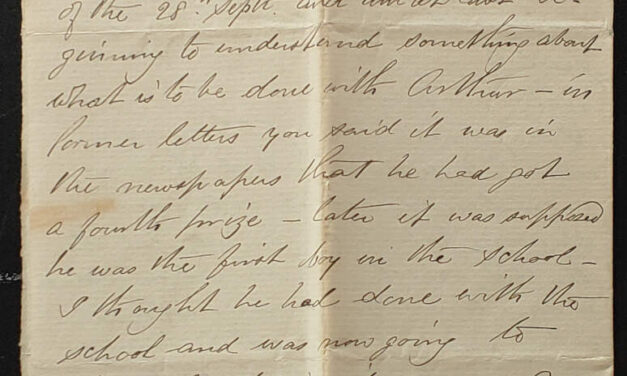 of the 28th Sept. and am at last be-
ginning to understand something about
what is to be done with Arthur – in
former letters you said it was in
the newspapers that he had got
a fourth prize – later it was supposed
he was the first boy in the school –
I thought he had done with the
school and was now going to